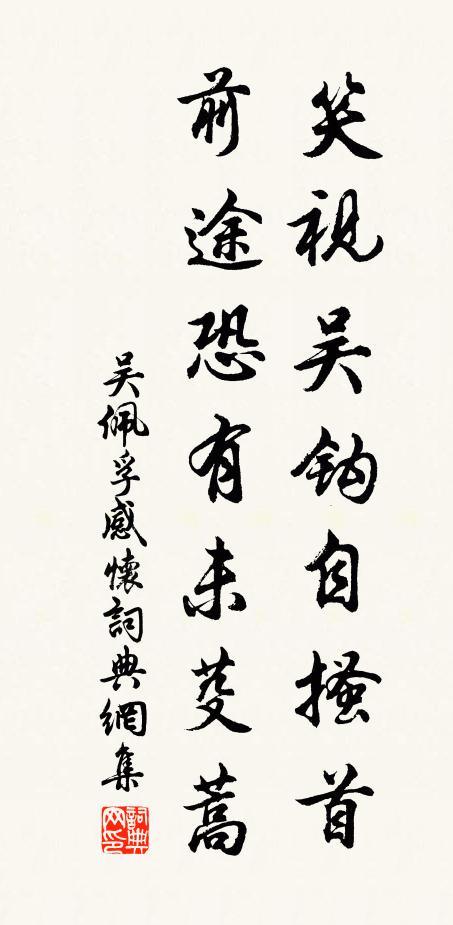 笑視吴鈎自搔首
前途恐有未芟蒿
吴佩孚感懷詞典網集
詞典网印